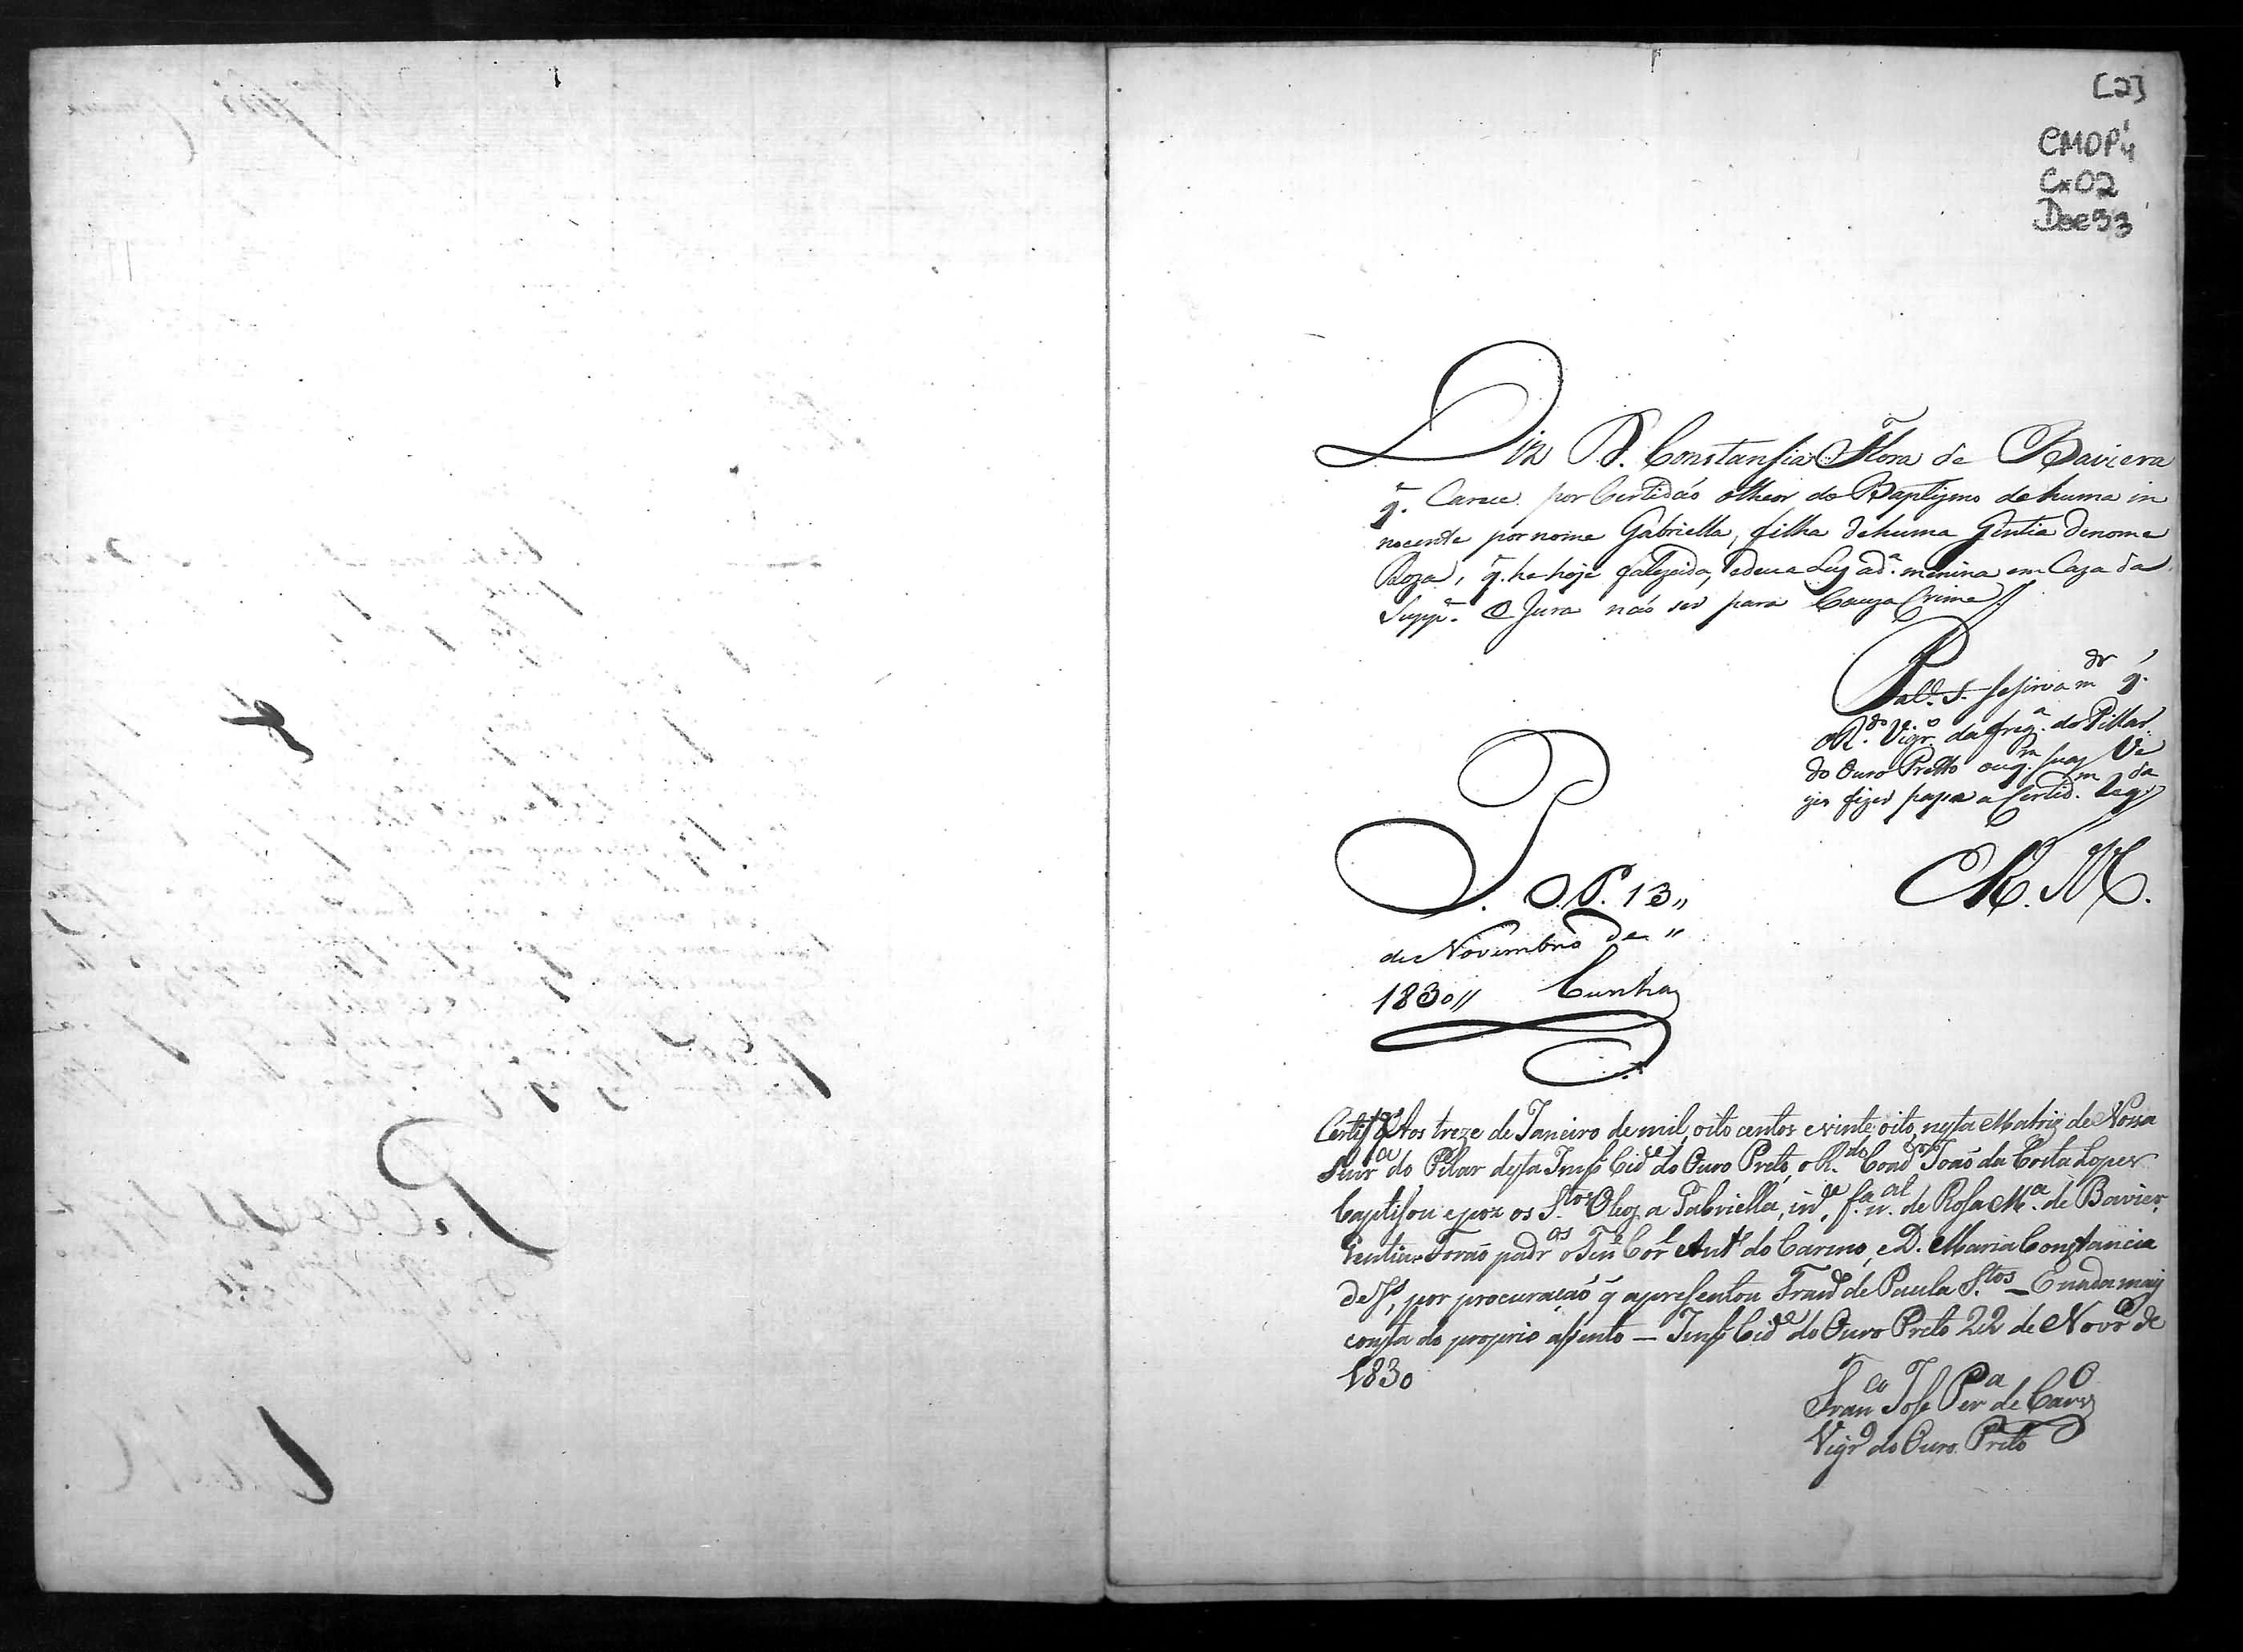 [2]
CMOP 4
Cx 02
Doc 33
Diz D. Constansia Flora de Baviera
q̃. Carece por Certidaõ otheor do Baptismo dehuma in
nocente por nome Gabriella, filha dehuma Gentia denome
Roza, q̃. he hoje falescida, edeu a Luz ad.ª menina em Caza da
Supp.e e Jura naõ ser para Cauza Crime
P. a V. S. sesirva m.dr q̃.
oR.do Vigr.o da freg.a do Pillar
do Ouro Pretto ouq.m suas Ve
zes fizer passe a Certid.m req.da
E. R. M.
P. O. P. 13,,
de Novembro de,,
1830,, Cunha
Certif.o q̃ Aos treze de Janeiro de mil, oito centos e vinte oito, nesta Matriz de Nossa
Snr.a do Pilar desta Imp.l Cid.e do Ouro Preto, o R.do Coad.or Joaõ da Costa Lopes
baptisou e poz os S.tos Oleos a Gabriella, in.te f.a n.al de Rosa M.a de Bavier.
Gentia. Foraõ padr.os o Ten.e Cor.l Ant.o do Carmo, e D. Maria Constancia
de Js., por procuraçaõ q̃ apresentou Fran.co de Paula S.tos – E nada mais
consta do proprio assento – Imp.l Cid.e do Ouro Preto 22 de Nov.o de
1830
Fran.co Jose Per.a de Carv.o
Vigr.o do Ouro Preto